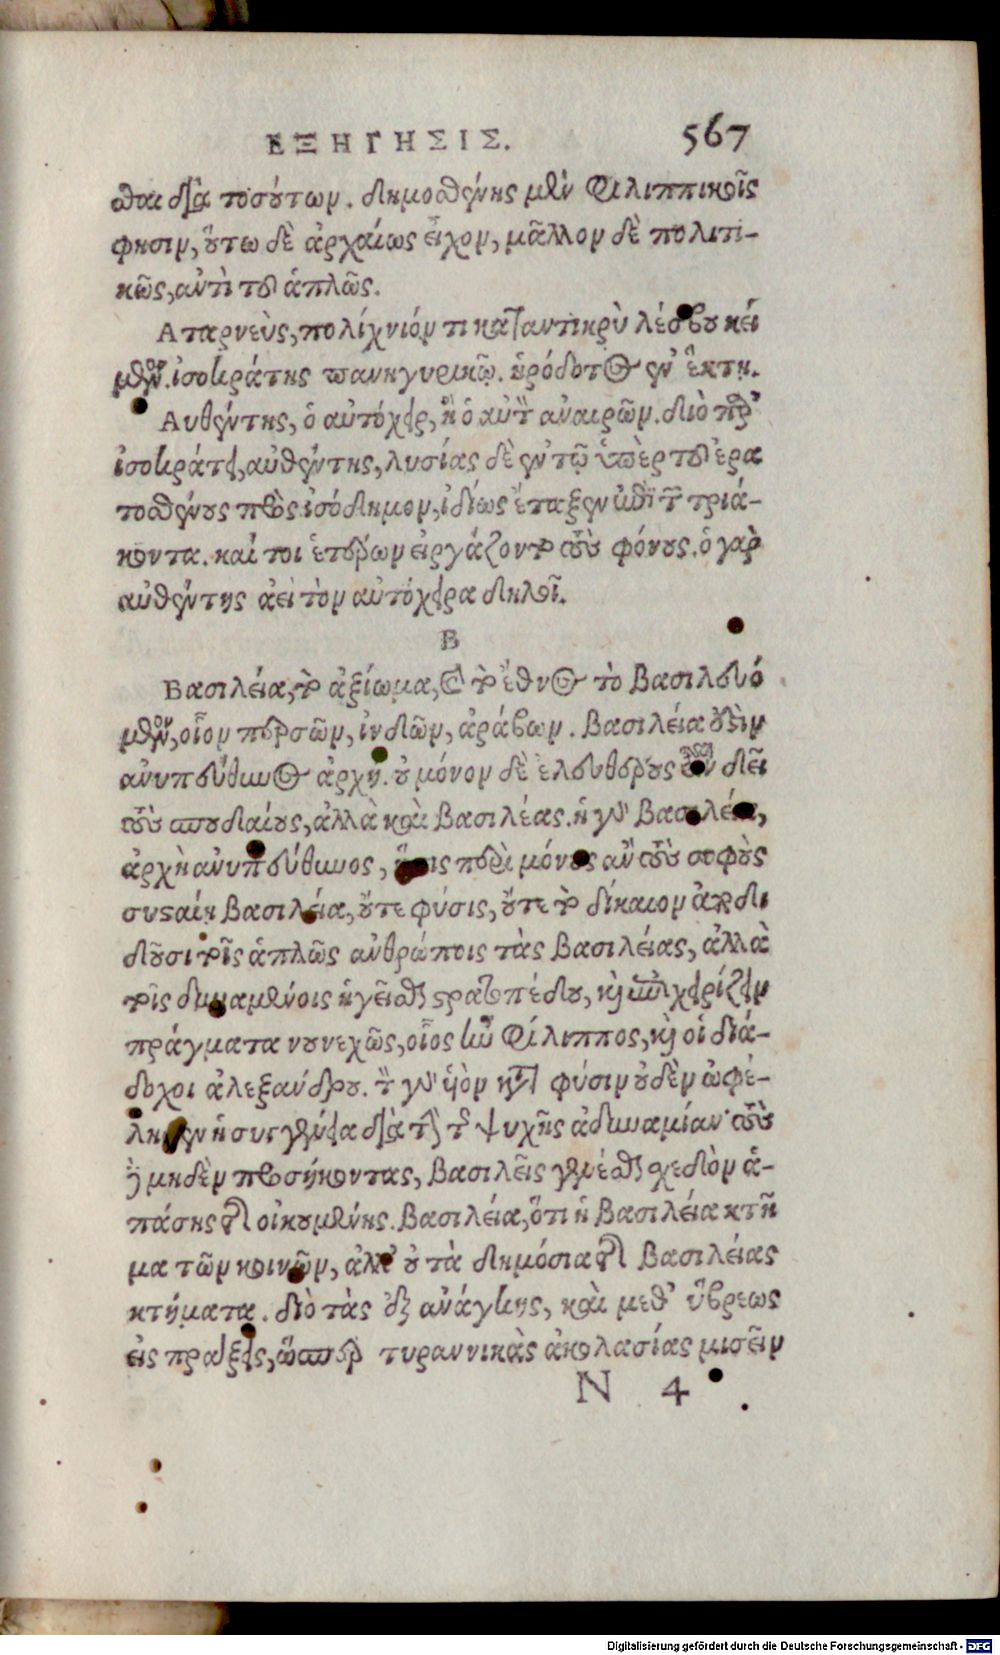 ΕΞΗΓΗΣΙΣ. 567
σθαι διὰ τοσούτων. δημοσθένης μὲν Φιλιππικοῖς
φησιν, οὕτω δὲ ἀρχαίως εἶχον, μᾶλλον δὲ πολιτι-
κῶς, ἀντὶ τοῦ ἁπλῶς.
Αταρνεὺς, πολίχνιόν τι καταντικρὺ λέσβου κεί
μενον. ἰσοκράτης πανηγυρικῷ. ἡρόδοτος ἐν ἕκτῃ.
Αυθέντης, ὁ αὐτόχειρ, ἢ ὁ αὑτὸν ἀναιρῶν. διὸ παρ’
ἰσοκράτει, αὐθέντης, λυσίας δὲ ἐν τῷ ὑπὲρ τοῦ ἐρα
τοσθένους πρὸς ἰσόδημον, ἰδίως ἔταξεν ἐπὶ τῶν τριά-
κοντα. καί τοι ἑτέρων εἰργάζοντο τοὺς φόνους. ὁ γὰρ
αὐθέντης ἀεὶ τὸν αὐτόχειρα δηλοῖ.
Β
Βασιλεία, τὸ ἀξίωμα, καὶ τὸ ἔθνος τὸ βασιλευό
μενον, οἷον περσῶν, ἰνδῶν, ἀράβων. βασιλεία οὖσιν
ἀνυπεύθυνος ἀρχή. οὐ μόνον δὲ ἐλευθέρους εἶναι δεῖ
τοὺς σπουδαίους, ἀλλὰ καὶ βασιλέας. ἡ γὰρ βασιλεία,
ἀρχὴ ἀνυπεύθυνος, ἥτις περὶ μόνους ἂν τοὺς σοφοὺς
συσταίη βασιλεία, οὔτε φύσις, οὔτε τὸ δίκαιον ἀποδι
δοῦσι τοῖς ἁπλῶς ἀνθρώποις τὰς βασιλείας, ἀλλὰ
τοῖς δυναμένοις ἡγεῖσθαι στρατοπέδου, καὶ χειρίζειν
πράγματα νουνεχῶς, οἷος ἦν Φίλιππος, καὶ οἱ διά-
δοχοι ἀλεξάνδρου. τὸν γὰρ υἱὸν κατὰ φύσιν οὐδὲν ὠφέ-
λησεν ἡ συγγένεια διὰ τὴν τῆς ψυχῆς ἀδυναμίαν· τοὺς
δὲ μηδὲν προσήκοντας, βασιλεῖς γενέσθαι σχεδὸν ἁ-
πάσης τῆς οἰκουμένης. βασιλεία, ὅτι ἡ βασιλεία κτῆ
μα τῶν κοινῶν, ἀλλ’ οὐ τὰ δημόσια τῆς βασιλείας
κτήματα. διὸ τὰς ἐξ ἀνάγκης, καὶ μεθ’ ὕβρεως
εἰσπράξεις, ὥσπερ τυραννικὰς ἀκολασίας μισεῖν
N 4
Digitalisierung gefördert durch die Deutsche Forschungsgemeinschaft - DFG